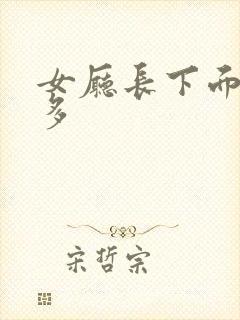 女廳長下面
多
宋哲宗